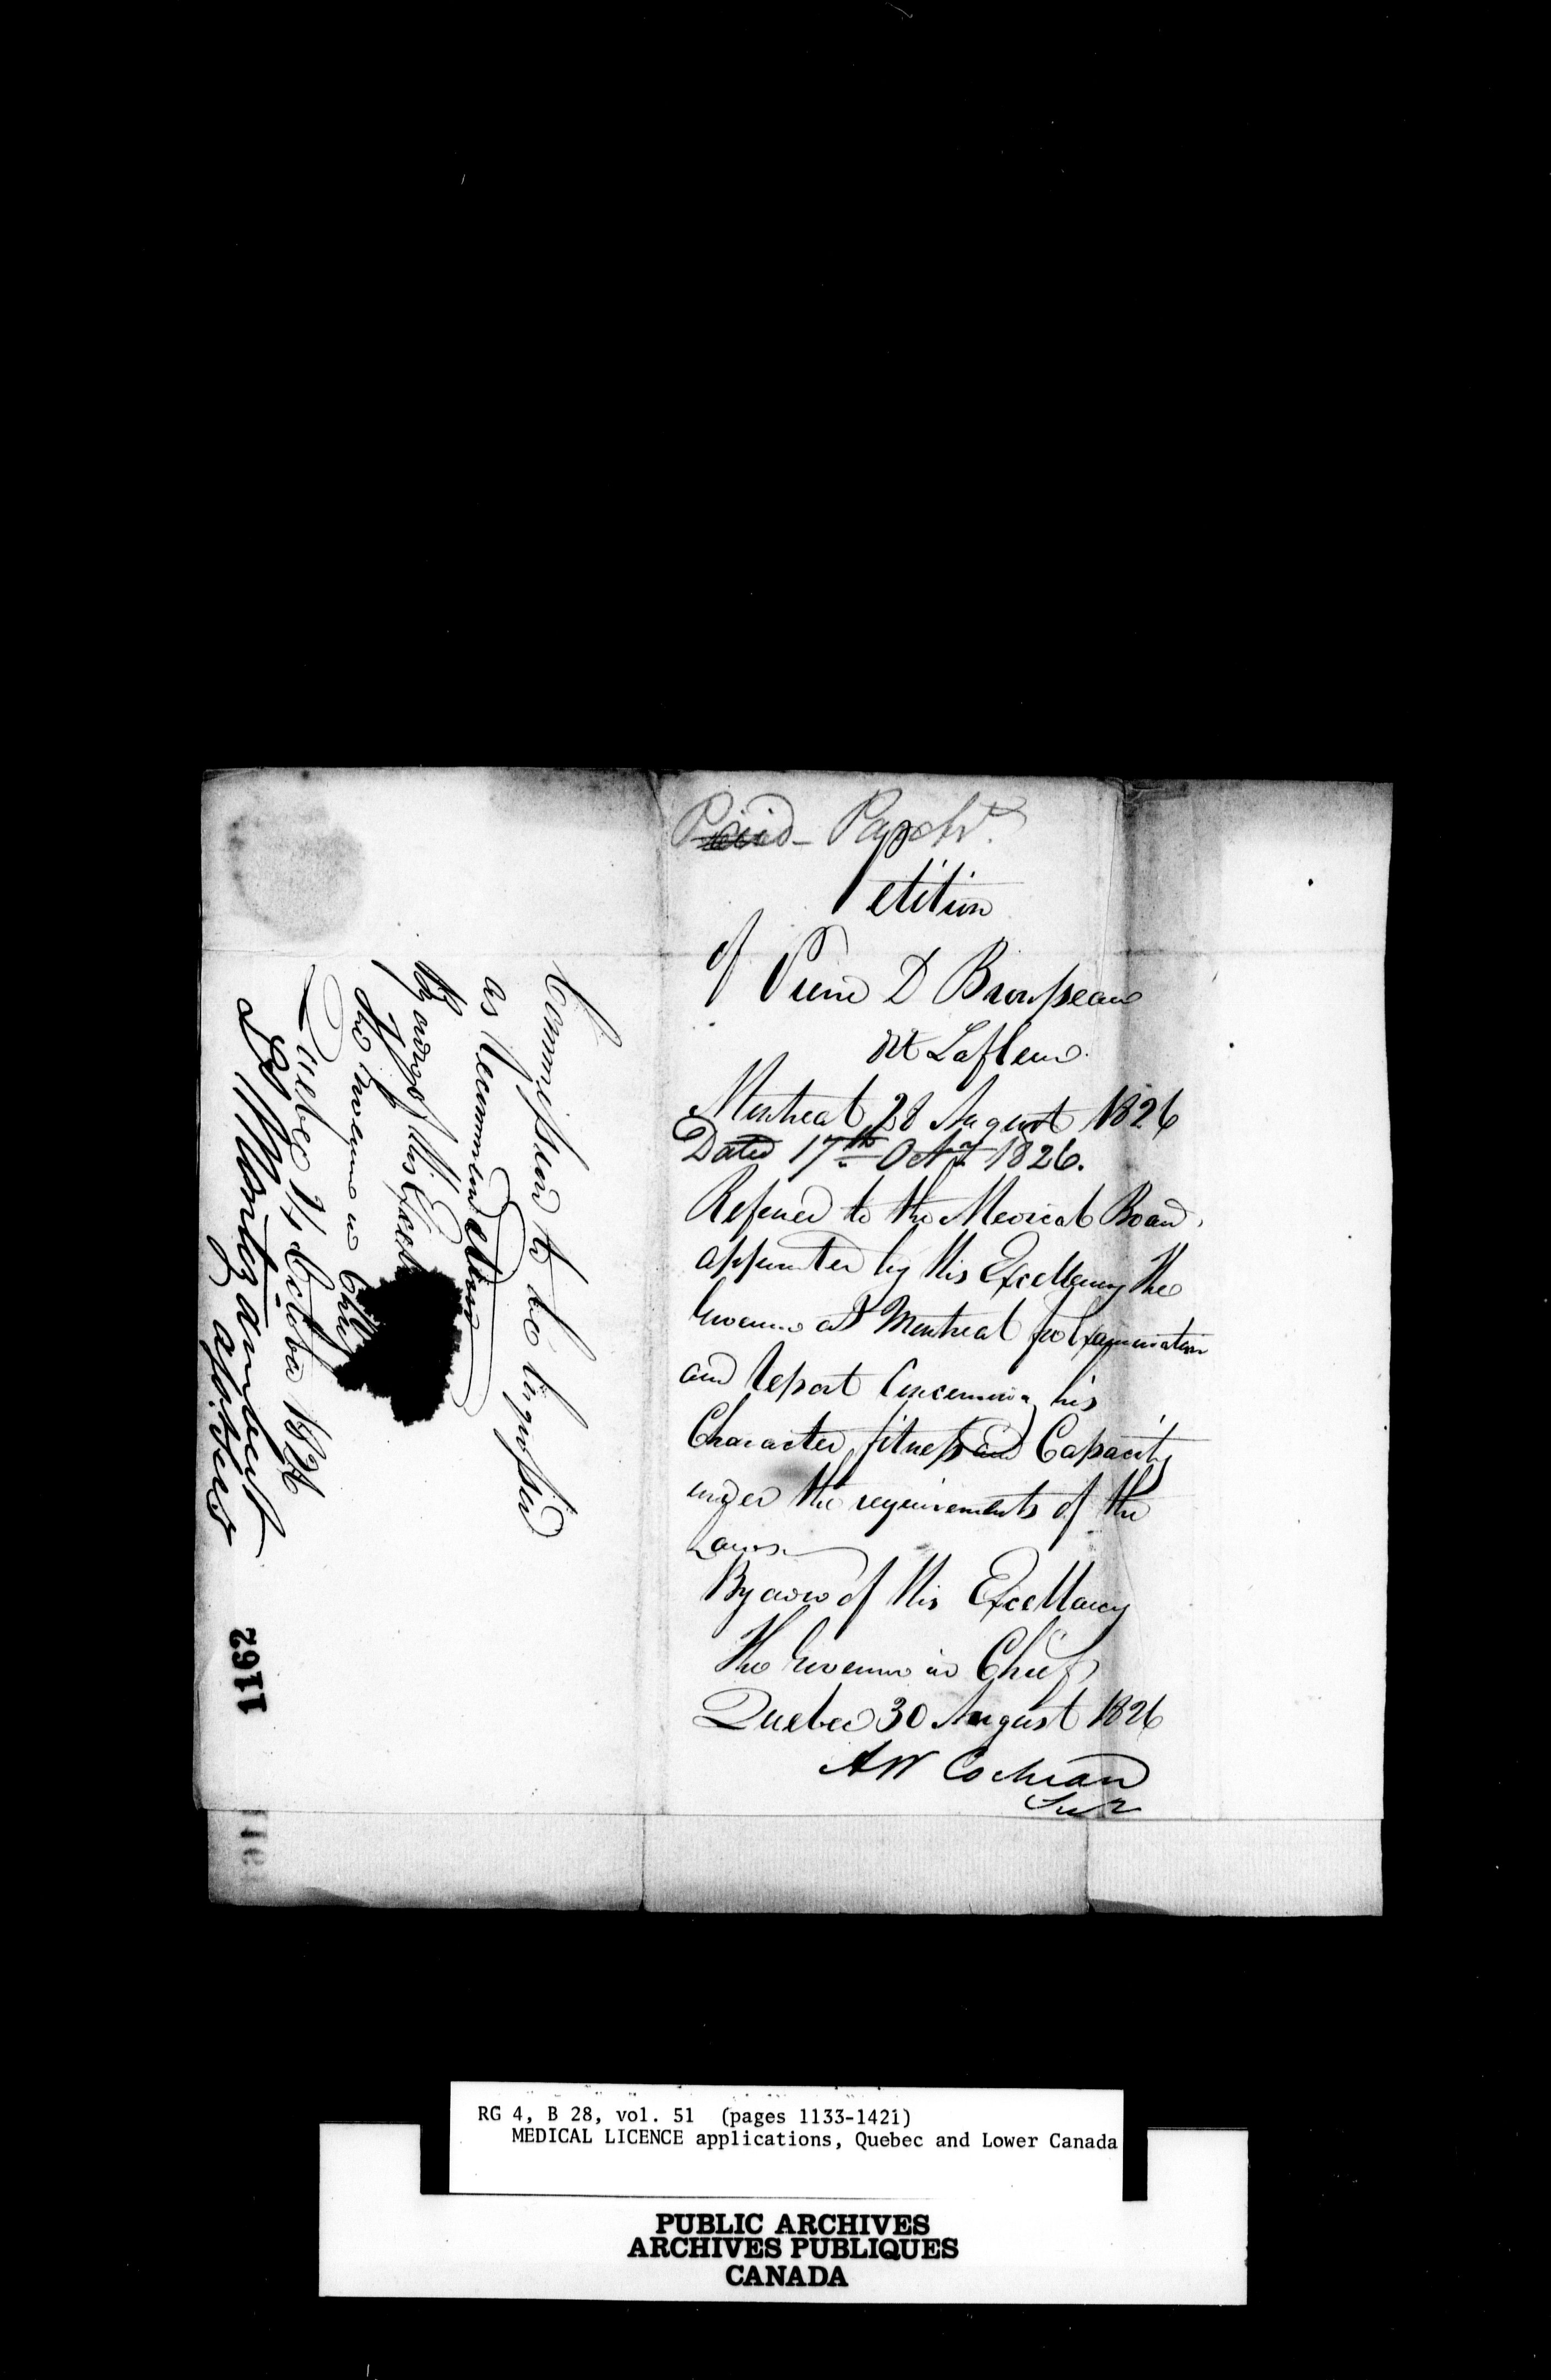 Paid - Parcht.
Petition
of Pierre D Brousseau
dit Lafleur
Montreal 28 August 1826
Dated 17th. Octr. 1826.
Referred to the Medical Board,
appointed by His Excellency the
Governor at Montreal for Examination
and Report Concerning his
Character, fitness and Capacity
under the requirements of the
Laws.
By order of His Excellency
The Governor in Chief
Quebec 30 August 1826
AW Cochran
Secy
Commission to be Engrossed
as Recommended
By order of His Excell
The Governor in Chief
Quebec 14 October 1826
Ls Montizambert
1162
RG 4, B 28, vol. 51 (pages 1133-1421)
MEDICAL LICENCE applications, Quebec and Lower Canada
PUBLIC ARCHIVES
ARCHIVES PUBLIQUES
CANADA